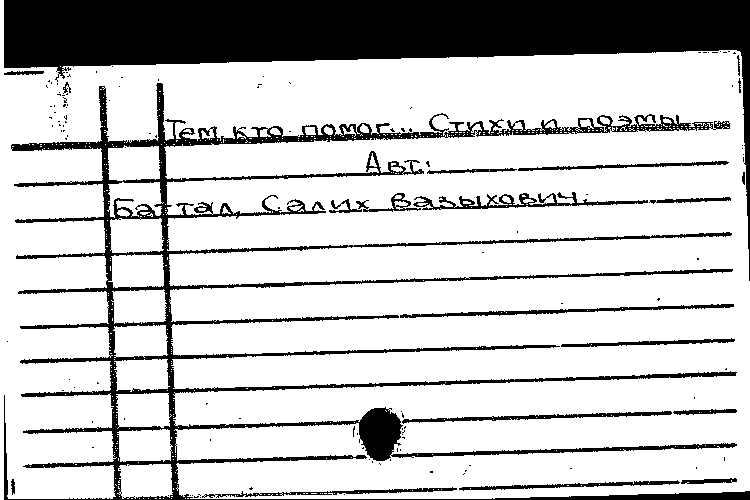 Тем, кто помог... Стихи и поэмы
Авт.:
Баттал, Салих Вазыхович.